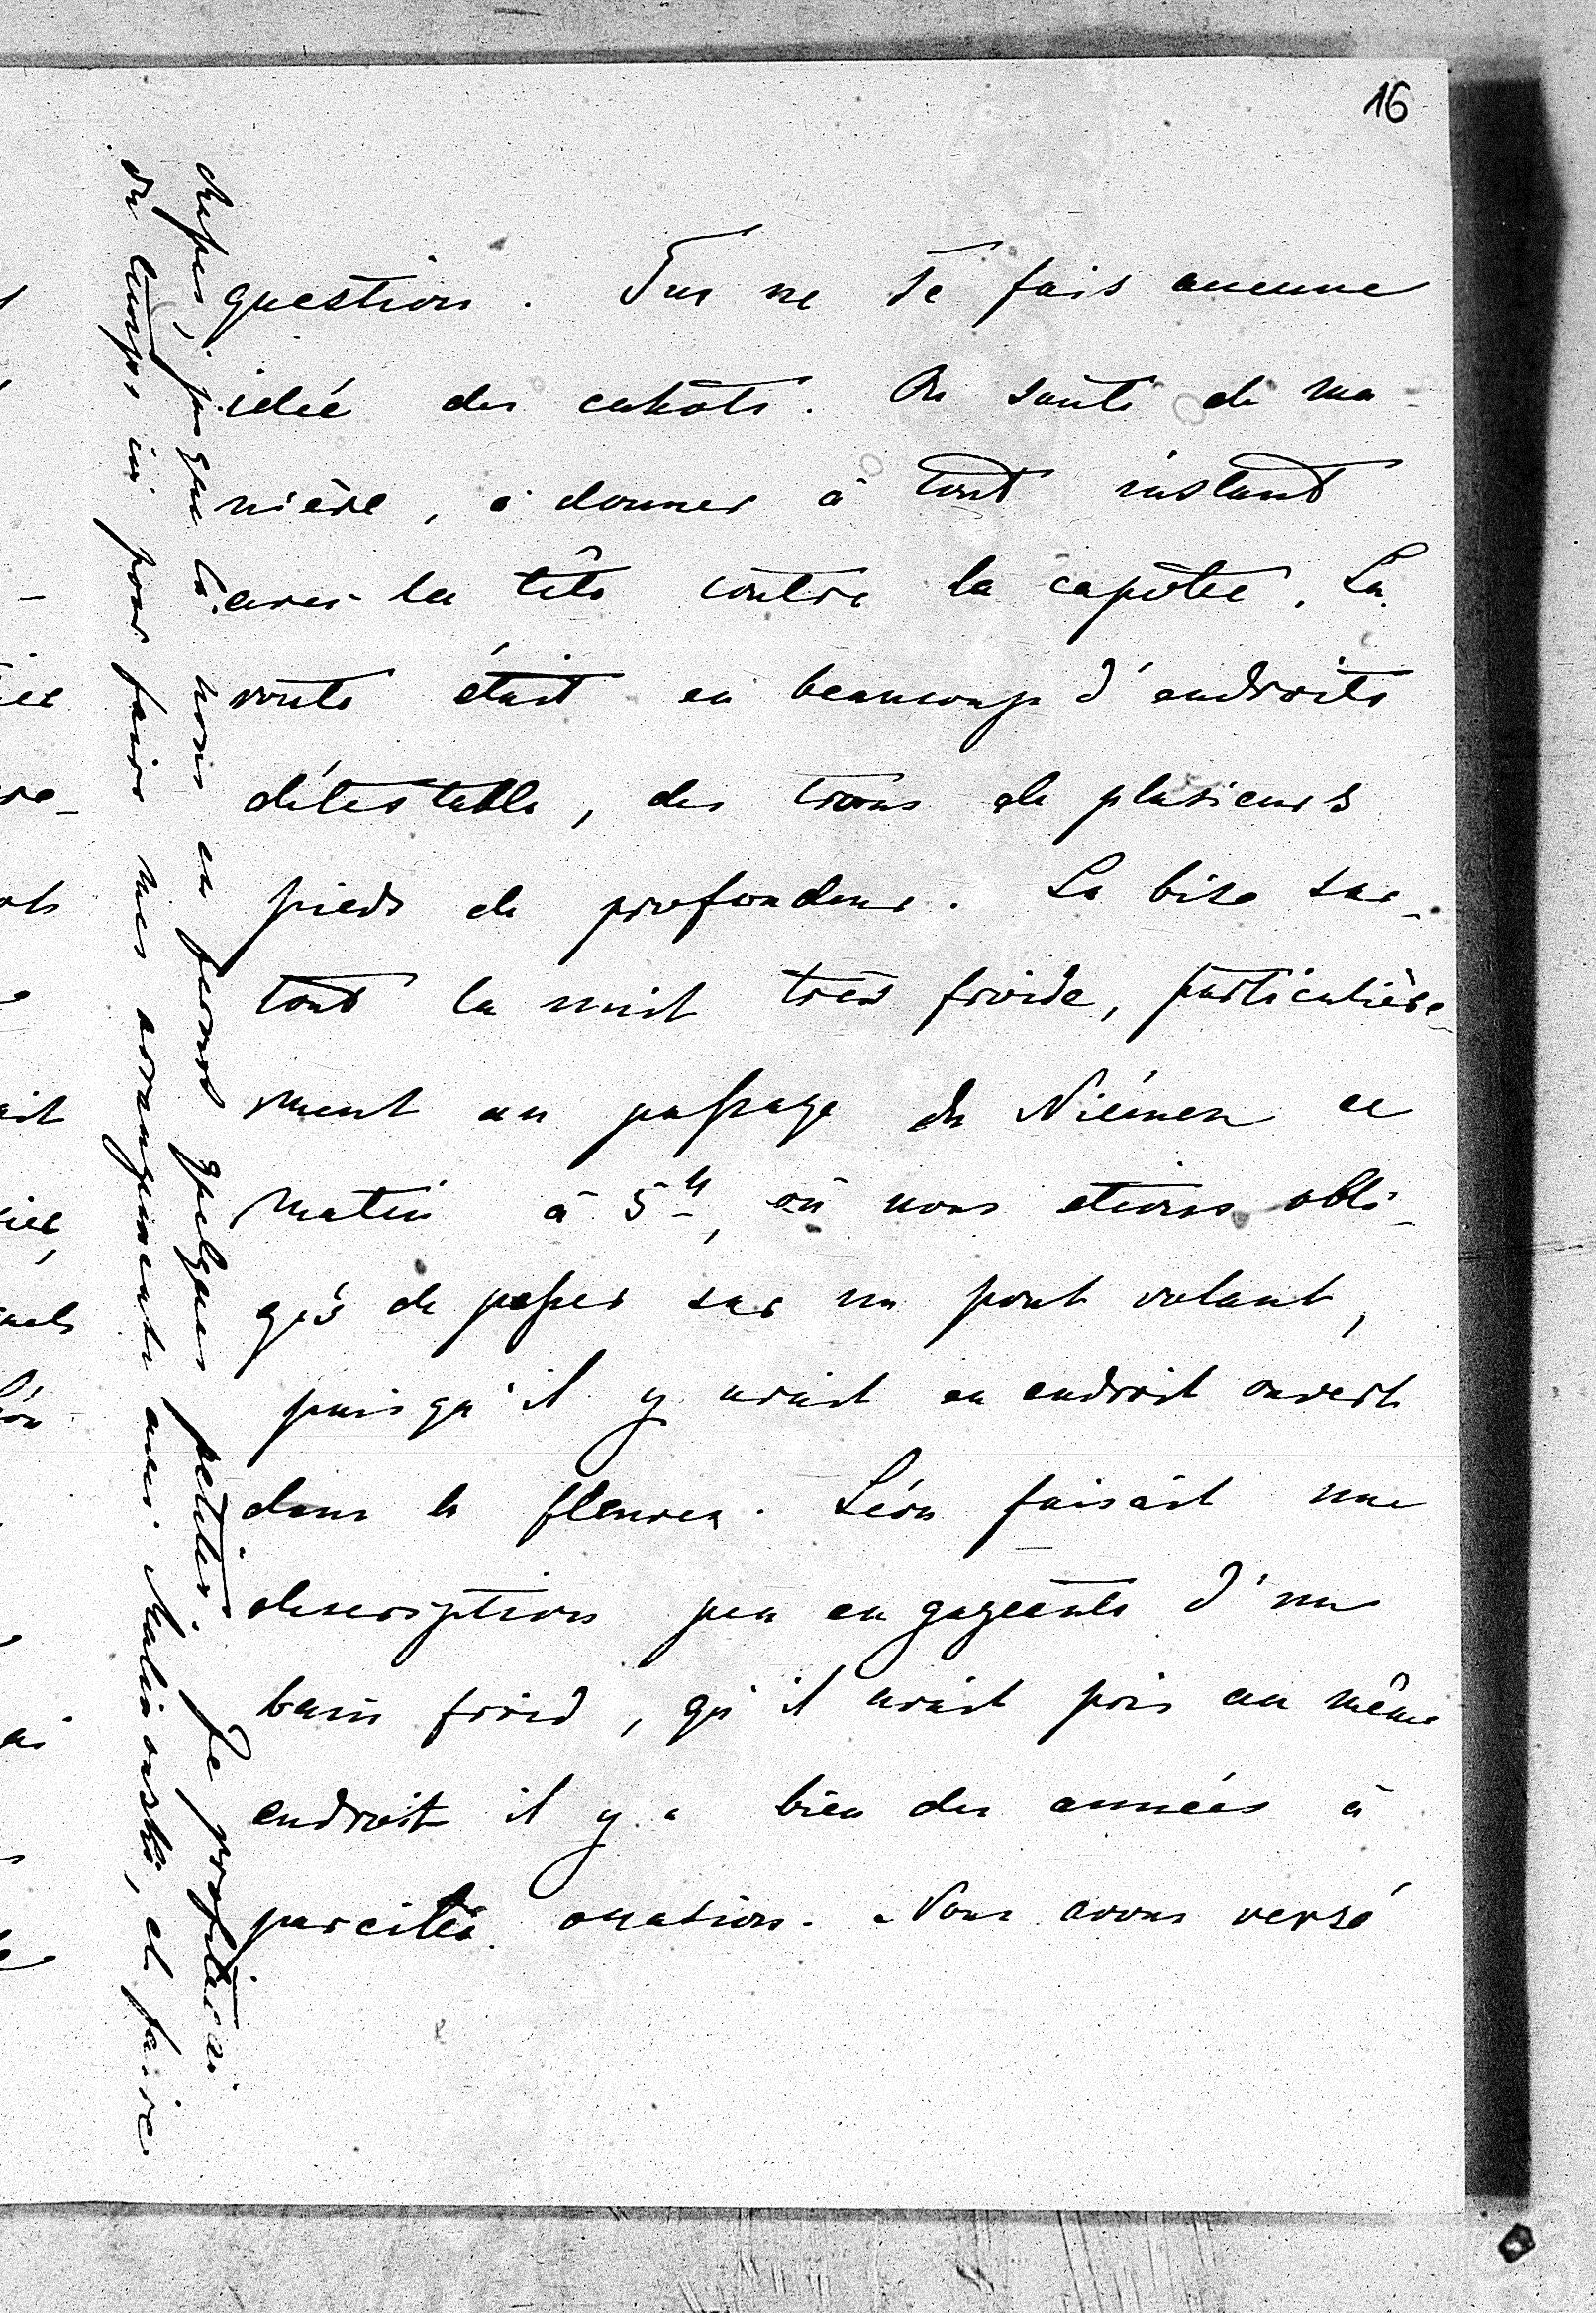 16
question. Tu ne te fais aucune
idée des cahôts. On saute de ma-
nière, à donner à tout instant
avec la tête contre la capôte. La
route était en beaucoup d'endroits
détestable, des trous de plusieurs
pieds de profondeur. La bise sur-
tout la nuit très froide, particulière-
ment au passage du Niémen ce
matin à 5h, où nous etions obli-
gés de passer sur un pont volant,
puisqu'il y avait un endroit ouvert
dans le fleuve. Léon faisait une
description peu engageante d'un
bain froid, qu'il avait pris au même
endroit il y a bien des années à
pareille occasion. Nous avons versé
jusque là nous en ferons quelques petites. Je profiterai
du temps ici pour faire mes arrangements avec et faire